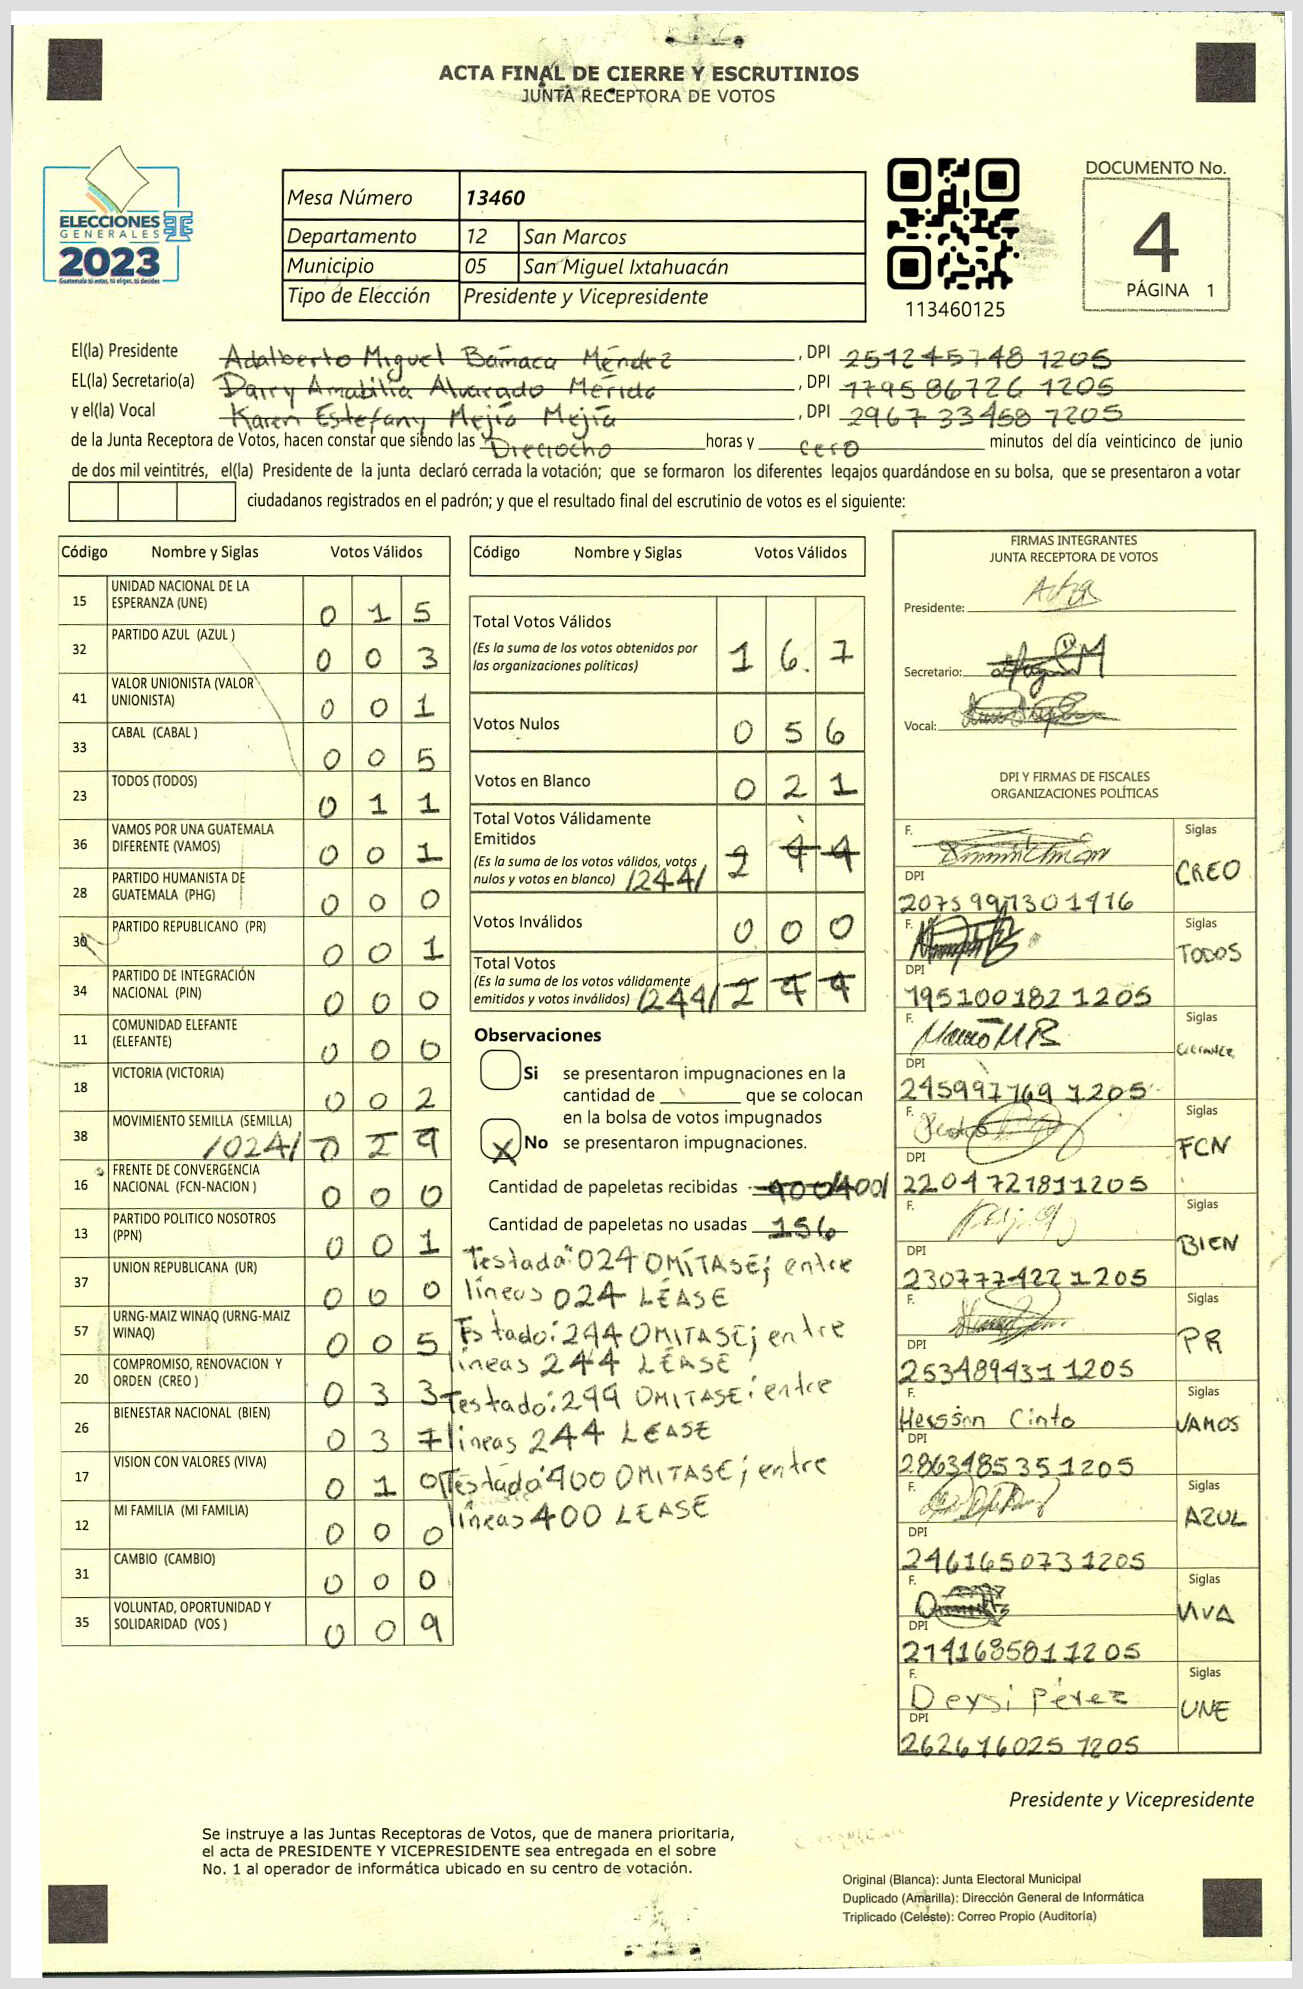 ACTA FINAL DE CIERRE Y ESCRUTINIOS
JUNTA RECEPTORA DE VOTOS
ELECCIONES
GENERALES
2023
Guatemala tú estas, tú eliges, tú decides
Mesa Número 13460
Departamento 12 San Marcos
Municipio 05 San Miguel Ixtahuacán
Tipo de Elección Presidente y Vicepresidente
113460125
DOCUMENTO No.
4
PÁGINA 1
El(la) Presidente Adalberto Miguel Bámaca Méndez, DPI 251245748 1205
EL(la) Secretario(a) Darry Amabilia Alvarado Mérida, DPI 179586726 1205
y el(la) Vocal Karen Estefany Mejía Mejía, DPI 296733458 1205
de la Junta Receptora de Votos, hacen constar que siendo las Dieciocho horas y cero minutos del día veinticinco de junio
de dos mil veintitrés, el(la) Presidente de la junta declaró cerrada la votación; que se formaron los diferentes legajos guardándose en su bolsa, que se presentaron a votar
ciudadanos registrados en el padrón; y que el resultado final del escrutinio de votos es el siguiente:
Código Nombre y Siglas Votos Válidos
15 UNIDAD NACIONAL DE LA ESPERANZA (UNE) 0 1 5
32 PARTIDO AZUL (AZUL ) 0 0 3
41 VALOR UNIONISTA (VALOR UNIONISTA) 0 0 1
33 CABAL (CABAL ) 0 0 5
23 TODOS (TODOS) 0 1 1
36 VAMOS POR UNA GUATEMALA DIFERENTE (VAMOS) 0 0 1
28 PARTIDO HUMANISTA DE GUATEMALA (PHG) 0 0 0
30 PARTIDO REPUBLICANO (PR) 0 0 1
34 PARTIDO DE INTEGRACIÓN NACIONAL (PIN) 0 0 0
11 COMUNIDAD ELEFANTE (ELEFANTE) 0 0 0
18 VICTORIA (VICTORIA) 0 0 2
38 MOVIMIENTO SEMILLA (SEMILLA) /024/ 0 2 4
16 FRENTE DE CONVERGENCIA NACIONAL (FCN-NACION ) 0 0 0
13 PARTIDO POLITICO NOSOTROS (PPN) 0 0 1
37 UNION REPUBLICANA (UR) 0 0 0
57 URNG-MAIZ WINAQ (URNG-MAIZ WINAQ) 0 0 5
20 COMPROMISO, RENOVACION Y ORDEN (CREO ) 0 3 3
26 BIENESTAR NACIONAL (BIEN) 0 3 7
17 VISION CON VALORES (VIVA) 0 1 0
12 MI FAMILIA (MI FAMILIA) 0 0 0
31 CAMBIO (CAMBIO) 0 0 0
35 VOLUNTAD, OPORTUNIDAD Y SOLIDARIDAD (VOS ) 0 0 9
Código Nombre y Siglas Votos Válidos
Total Votos Válidos 1 6 7
(Es la suma de los votos obtenidos por
las organizaciones políticas)
Votos Nulos 0 5 6
Votos en Blanco 0 2 1
Total Votos Válidamente
Emitidos 2 4 4
(Es la suma de los votos válidos, votos
nulos y votos en blanco) /244/
Votos Inválidos 0 0 0
Total Votos
(Es la suma de los votos válidamente
emitidos y votos inválidos) /244/ 2 4 4
Observaciones
Si se presentaron impugnaciones en la
cantidad de ________ que se colocan
en la bolsa de votos impugnados
X No se presentaron impugnaciones.
Cantidad de papeletas recibidas 400/400/
Cantidad de papeletas no usadas 156
Testado: 024 OMÍTASE; entre
líneas 024 LÉASE
Testado: 244 OMITASE; entre
líneas 244 LÉASE
Testado: 244 OMITASE; entre
líneas 244 LEASE
Testado: 400 OMITASE; entre
líneas 400 LEASE
FIRMAS INTEGRANTES
JUNTA RECEPTORA DE VOTOS
Presidente:
Secretario:
Vocal:
DPI Y FIRMAS DE FISCALES
ORGANIZACIONES POLÍTICAS
F. Siglas
DPI CREO
F. Siglas
DPI TODOS
195100182 1205
F. Siglas
DPI ELEFANTE
245997769 1205
F. Siglas
DPI FCN
220472181 1205
F. Siglas
DPI BIEN
230777422 1205
F. Siglas
DPI PR
253489431 1205
F. Siglas
Hersson Cinto
DPI VAMOS
286348535 1205
F. Siglas
DPI AZUL
246165073 1205
F. Siglas
DPI VIVA
274168581 1205
F. Siglas
Deysi Pérez
DPI UNE
262616025 1205
Presidente y Vicepresidente
Se instruye a las Juntas Receptoras de Votos, que de manera prioritaria,
el acta de PRESIDENTE Y VICEPRESIDENTE sea entregada en el sobre
No. 1 al operador de informática ubicado en su centro de votación.
Original (Blanca): Junta Electoral Municipal
Duplicado (Amarilla): Dirección General de Informática
Triplicado (Celeste): Correo Propio (Auditoría)